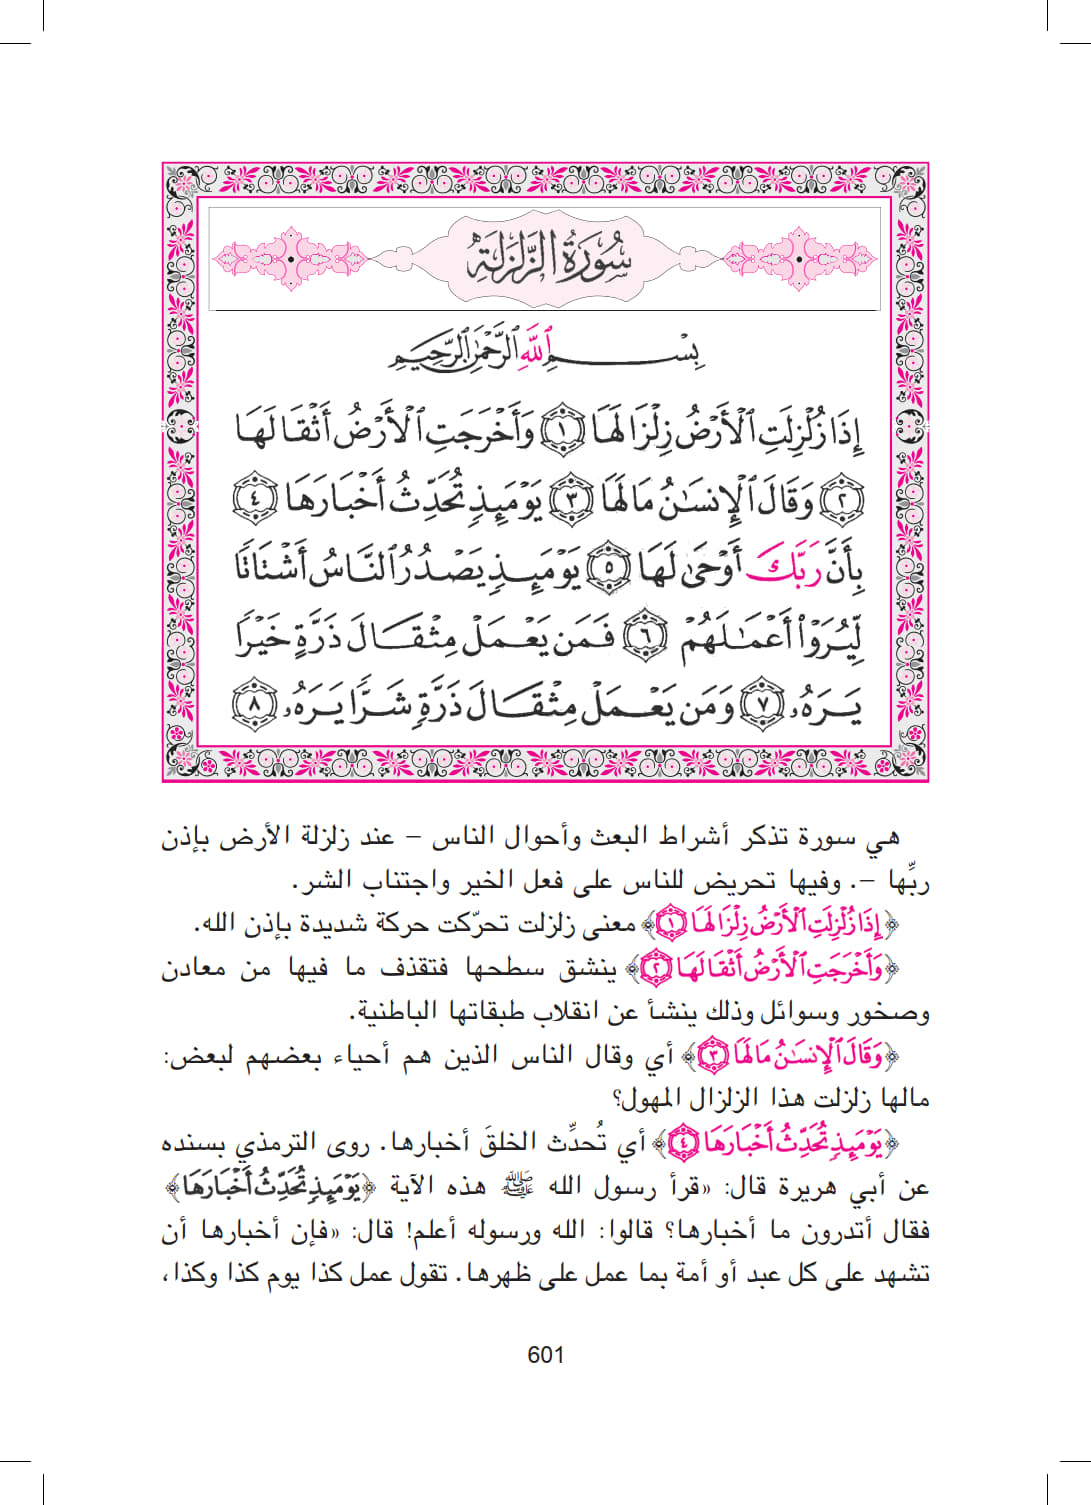 سُورَةُ الزَّلْزَلَةِ
بِسْمِ ٱللَّهِ ٱلرَّحْمَٰنِ ٱلرَّحِيمِ
إِذَا زُلْزِلَتِ ٱلْأَرْضُ زِلْزَالَهَا ١ وَأَخْرَجَتِ ٱلْأَرْضُ أَثْقَالَهَا
٢ وَقَالَ ٱلْإِنسَٰنُ مَا لَهَا ٣ يَوْمَئِذٍ تُحَدِّثُ أَخْبَارَهَا ٤
بِأَنَّ رَبَّكَ أَوْحَىٰ لَهَا ٥ يَوْمَئِذٍ يَصْدُرُ ٱلنَّاسُ أَشْتَاتًا
لِّيُرَوْا۟ أَعْمَٰلَهُمْ ٦ فَمَن يَعْمَلْ مِثْقَالَ ذَرَّةٍ خَيْرًا
يَرَهُۥ ٧ وَمَن يَعْمَلْ مِثْقَالَ ذَرَّةٍ شَرًّا يَرَهُۥ ٨
هي سورة تذكر أشراط البعث وأحوال الناس – عند زلزلة الأرض بإذن
ربِّها –. وفيها تحريض للناس على فعل الخير واجتناب الشر.
﴿إِذَا زُلْزِلَتِ ٱلْأَرْضُ زِلْزَالَهَا ١﴾ معنى زلزلت تحرّكت حركة شديدة بإذن الله.
﴿وَأَخْرَجَتِ ٱلْأَرْضُ أَثْقَالَهَا ٢﴾ ينشق سطحها فتقذف ما فيها من معادن
وصخور وسوائل وذلك ينشأ عن انقلاب طبقاتها الباطنية.
﴿وَقَالَ ٱلْإِنسَٰنُ مَا لَهَا ٣﴾ أي وقال الناس الذين هم أحياء بعضهم لبعض:
مالها زلزلت هذا الزلزال المهول؟
﴿يَوْمَئِذٍ تُحَدِّثُ أَخْبَارَهَا ٤﴾ أي تُحدِّث الخلقَ أخبارها. روى الترمذي بسنده
عن أبي هريرة قال: «قرأ رسول الله ﷺ هذه الآية ﴿يَوْمَئِذٍ تُحَدِّثُ أَخْبَارَهَا﴾
فقال أتدرون ما أخبارها؟ قالوا: الله ورسوله أعلم! قال: «فإن أخبارها أن
تشهد على كل عبد أو أمة بما عمل على ظهرها. تقول عمل كذا يوم كذا وكذا،
601